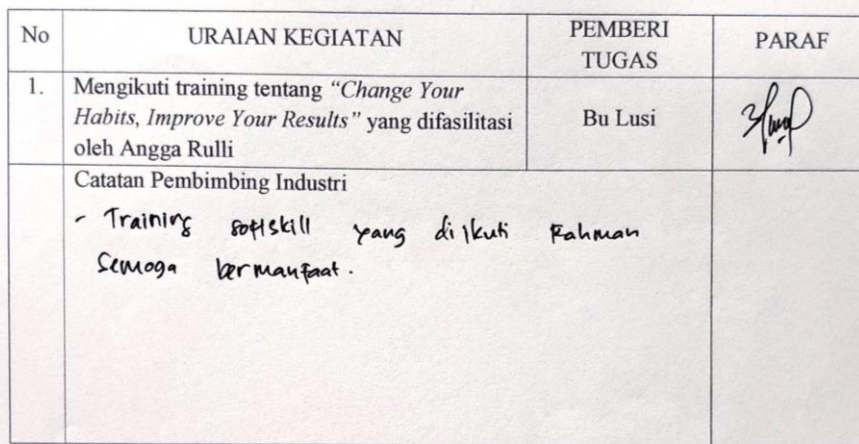 No URAIAN KEGIATAN PEMBERI TUGAS PARAF
1. Mengikuti training tentang "Change Your
Habits, Improve Your Results" yang difasilitasi
oleh Angga Rulli
Bu Lusi
Catatan Pembimbing Industri
- Training softskill yang diikuti Rahman
Semoga bermanfaat.